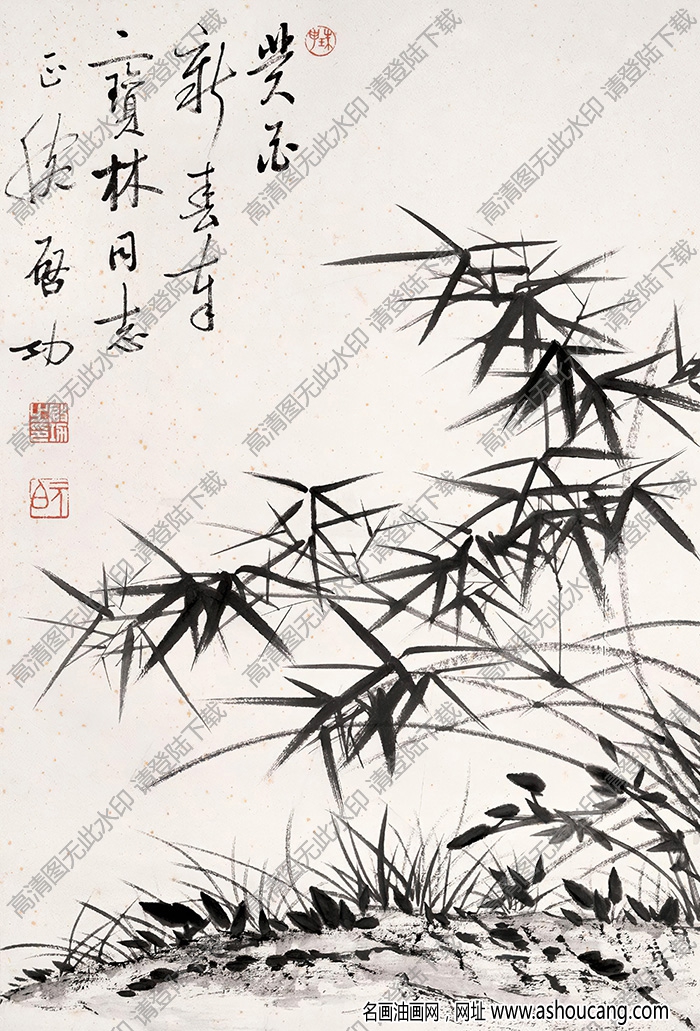 癸
新春奉
寶林同志
正 啟功
珠申
元白
高清图无此水印 请登陆下载
名画油画网 网址 www.ashoucang.com